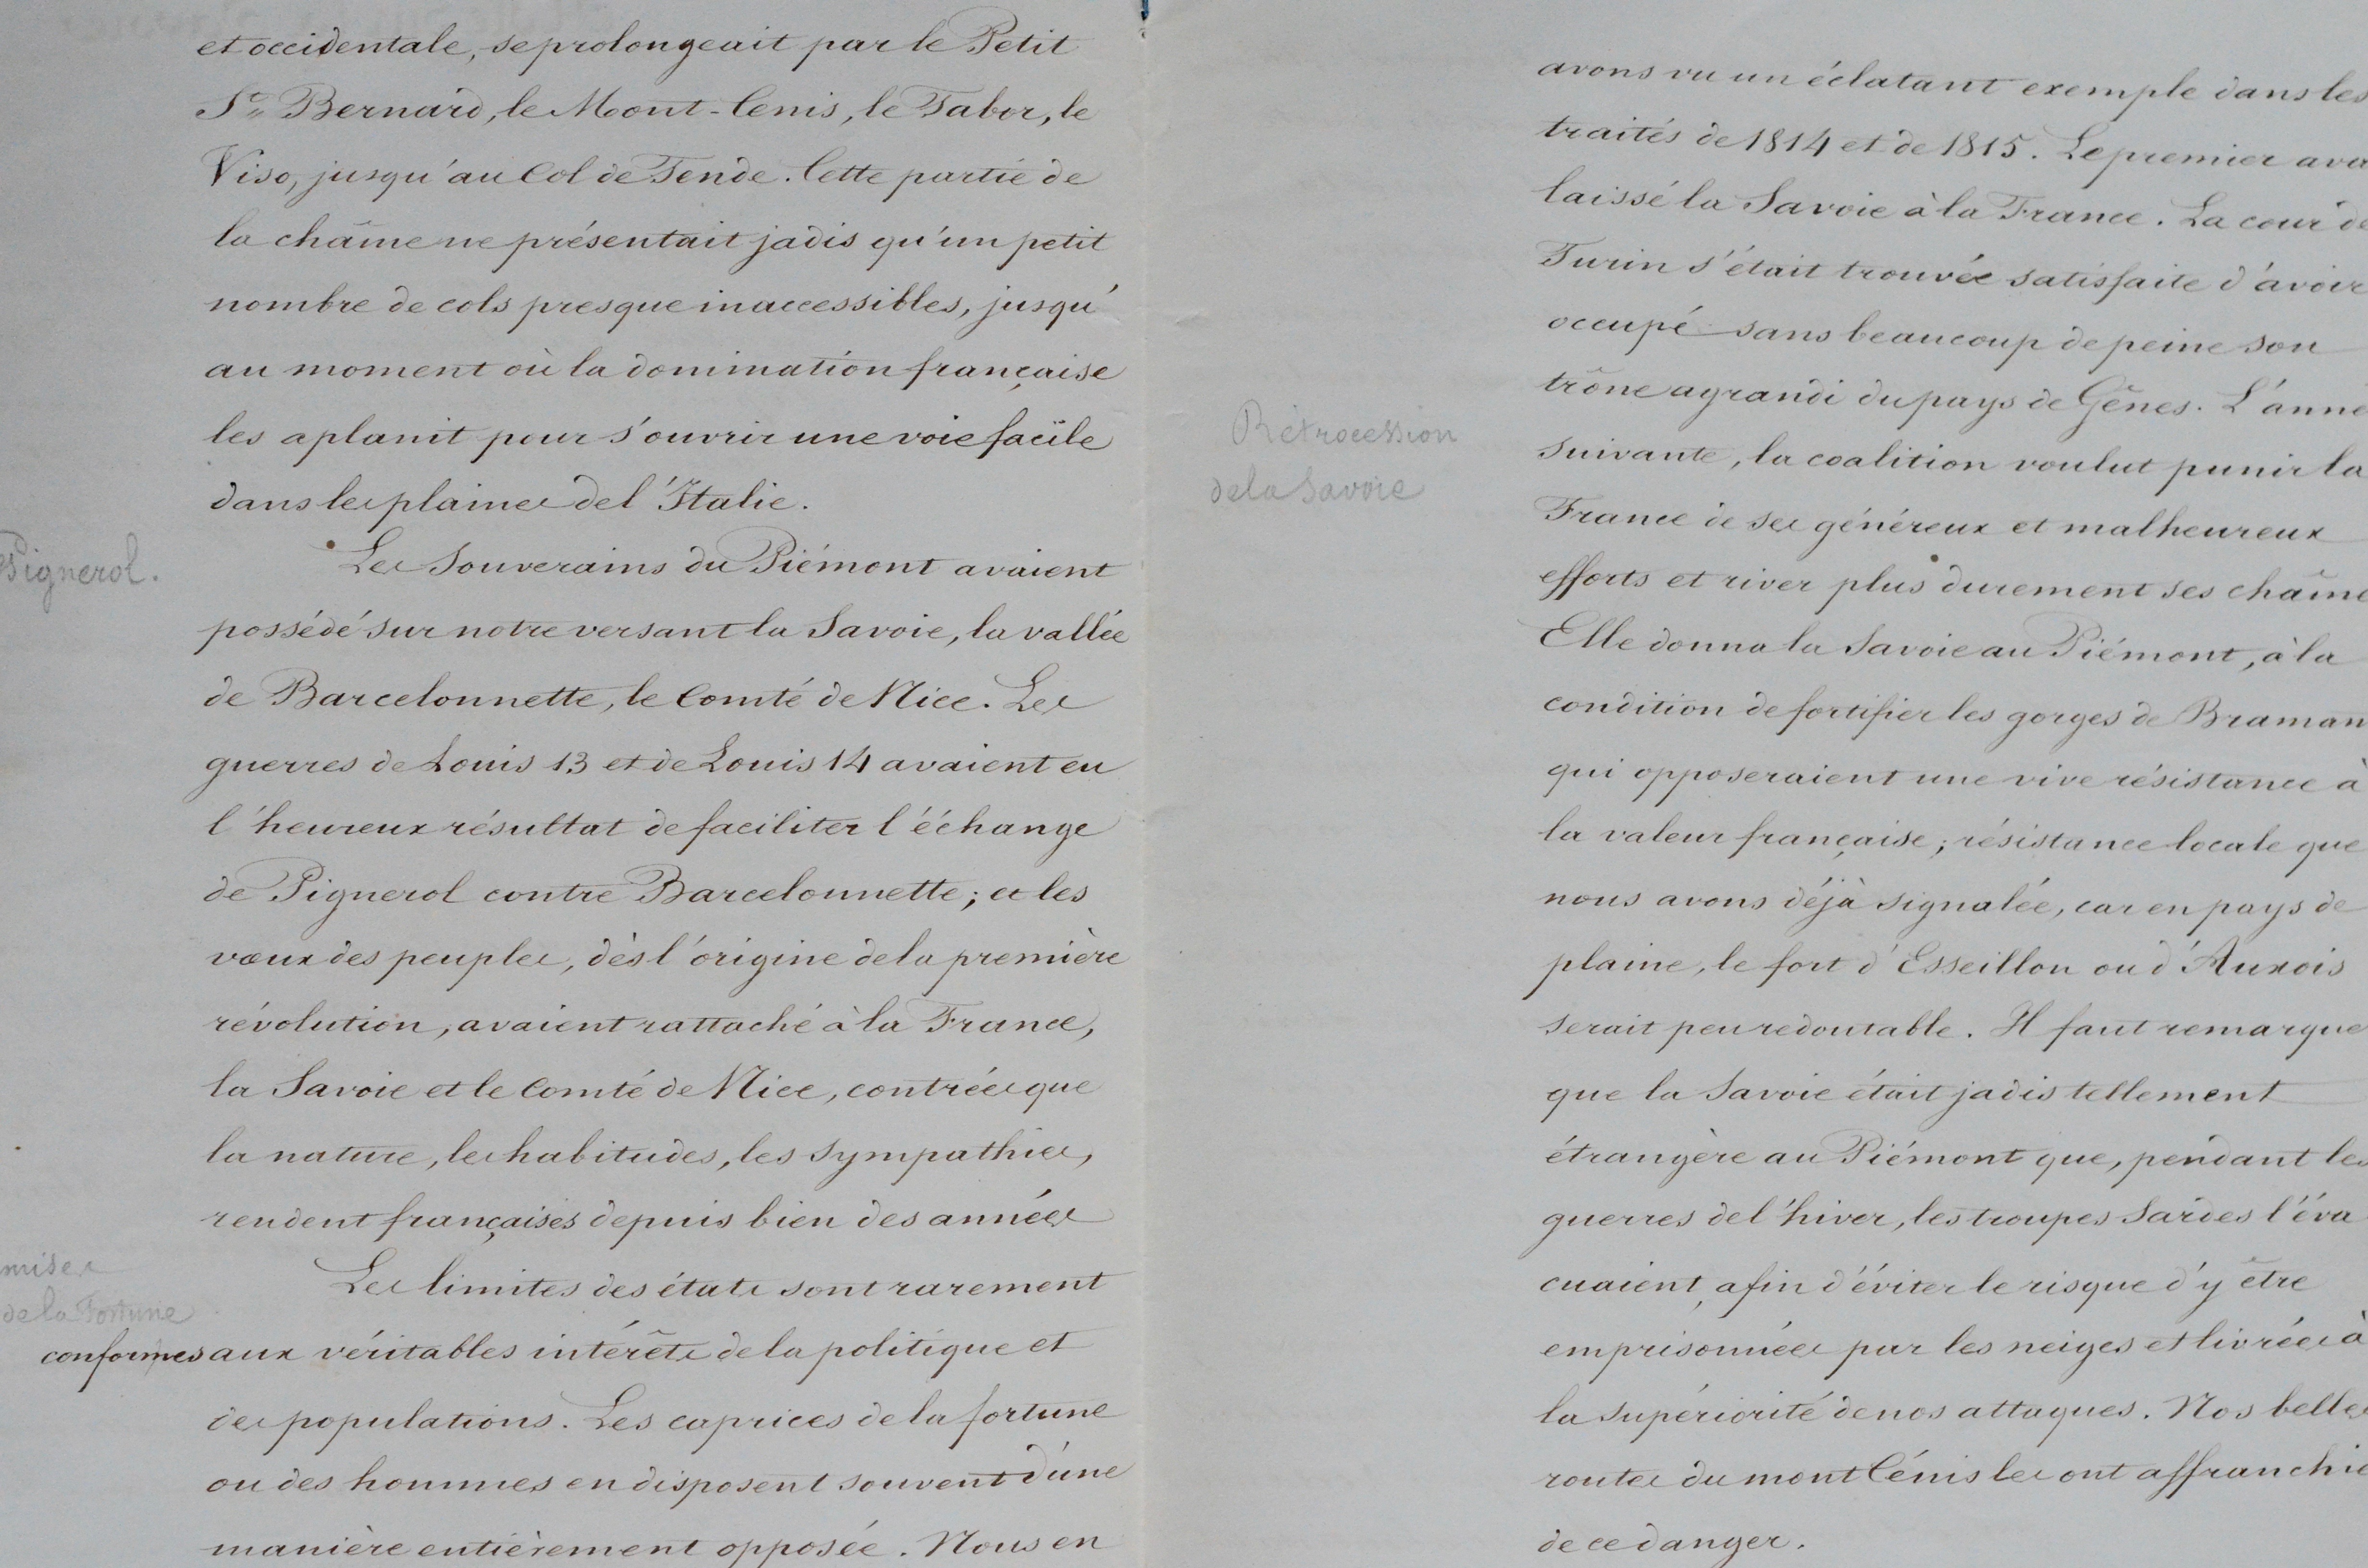 et occidentale, se prolongeait par le Petit
St. Bernard, le Mont-Cenis, le Tabor, le
Viso, jusqu'au Col de Tende. Cette partie de
la chaîne ne présentait jadis qu'un petit
nombre de cols presque inaccessibles, jusqu'
au moment où la domination française
les aplanit pour s'ouvrir une voie facile
dans les plaines de l'Italie.
Pignerol.
Les Souverains du Piémont avaient
possédé sur notre versant la Savoie, la vallée
de Barcelonnette, le Comté de Nice. Les
guerres de Louis 13 et de Louis 14 avaient eu
l'heureux résultat de faciliter l'échange
de Pignerol contre Barcelonnette; et les
vœux des peuples, dès l'origine de la première
révolution, avaient rattaché à la France,
la Savoie et le Comté de Nice, contrées que
la nature, les habitudes, les sympathies,
rendent françaises depuis bien des années
mises
de la Fortune
Les limites des états sont rarement
conformes aux véritables intérêts de la politique et
des populations. Les caprices de la fortune
ou des hommes en disposent souvent d'une
manière entièrement opposée. Nous en
avons vu un éclatant exemple dans les
traités de 1814 et de 1815. Le premier ava
laissé la Savoie à la France. La cour de
Turin s'était trouvée satisfaite d'avoir
occupé sans beaucoup de peine son
trône agrandi du pays de Gênes. L'anné
Rétrocession
de la Savoie
suivante, la coalition voulut punir la
France de ses généreux et malheureux
efforts et river plus durement ses chaîne
Elle donna la Savoie au Piémont, à la
condition de fortifier les gorges de Braman
qui opposeraient une vive résistance à
la valeur française; résistance locale que
nous avons déjà signalée, car en pays de
plaine, le fort d'Esseillon ou d'Auxois
serait peu redoutable. Il faut remarque
que la Savoie était jadis tellement
étrangère au Piémont que, pendant les
guerres de l'hiver, les troupes Sardes l'éva
cuaient, afin d'éviter le risque d'y être
emprisonnées par les neiges et livrées à
la supériorité de nos attaques. Nos belles
routes du mont Cénis les ont affranchie
de ce danger.